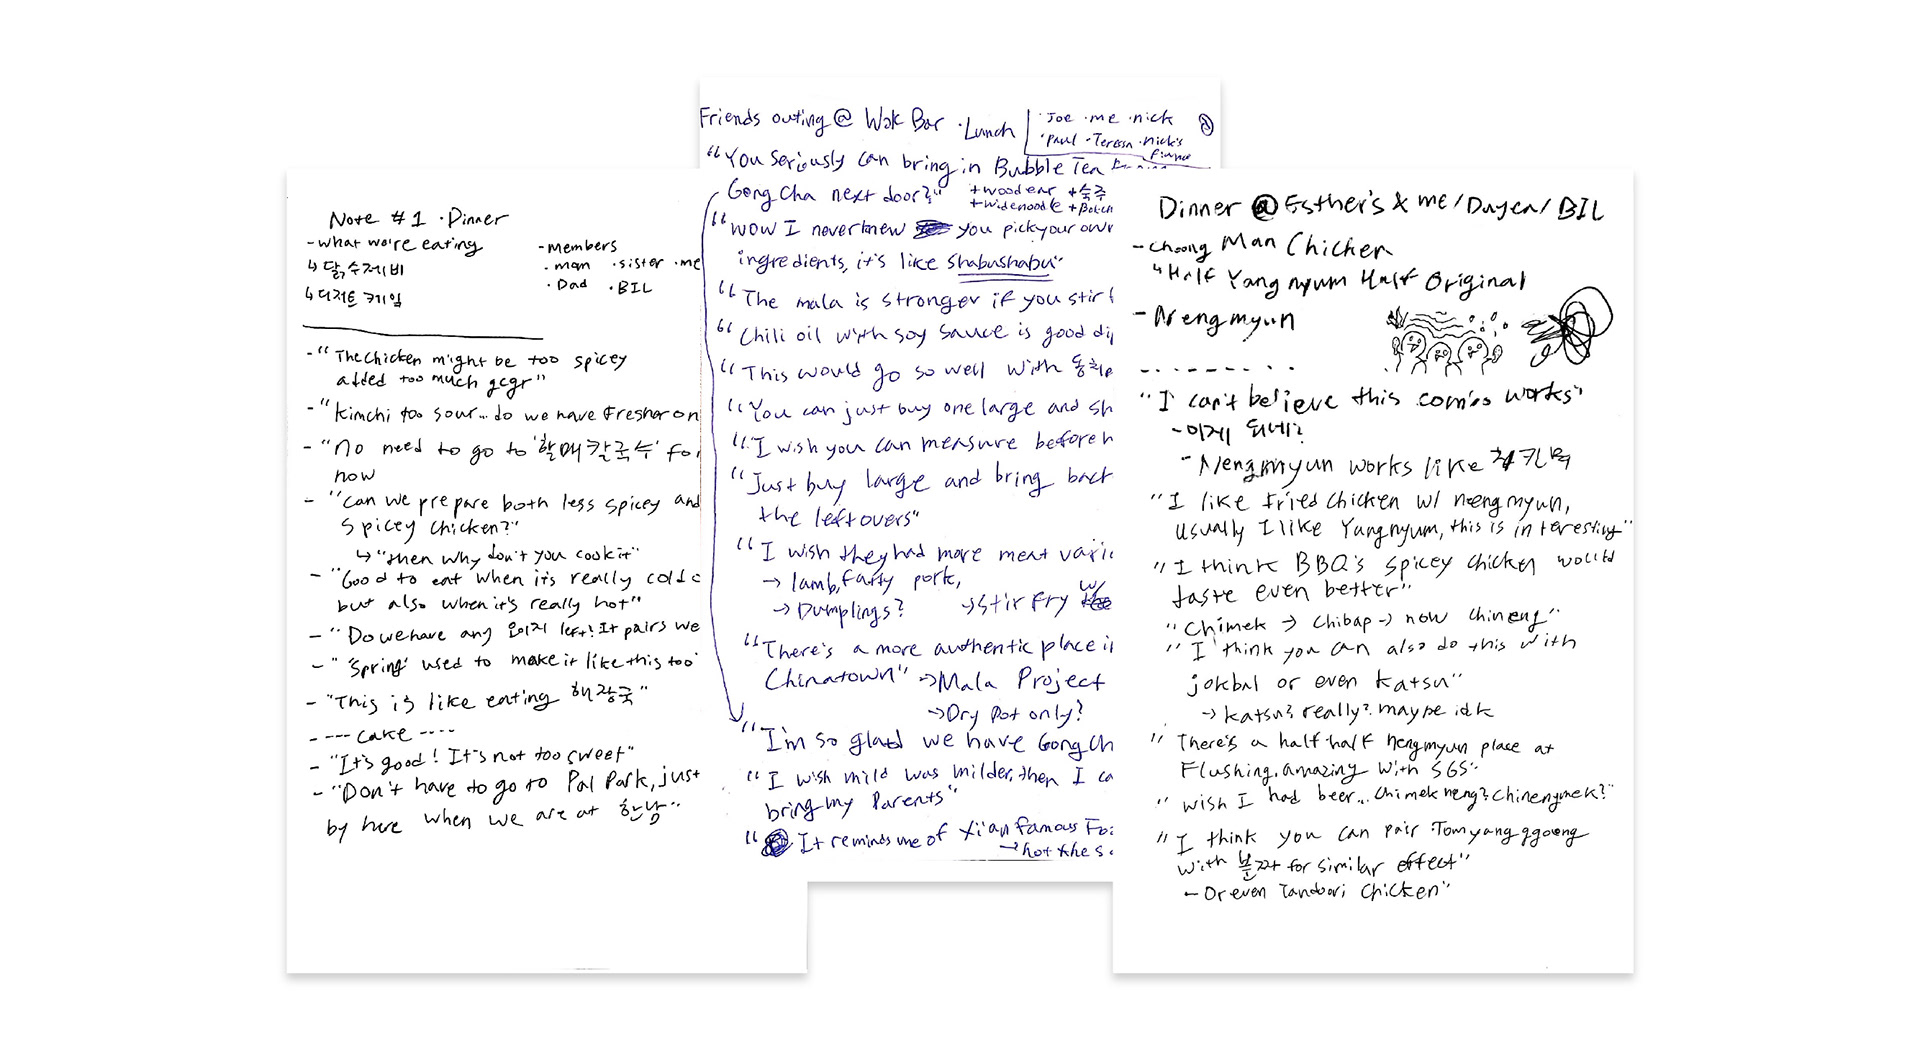 Note #1 · Dinner
- what we're eating
↳ 닭수제비
↳ 디저트 케잌
- members
· mom · sister · me
· Dad · BIL
- "The chicken might be too spicey
added too much
- "kimchi too sour... do we have fresher on
- "No need to go to '할매칼국수' for
now
- "Can we prepare both less spicey and
spicey chicken?"
↳ "then why don't you cook it"
- "Good to eat when it's really cold
but also when it's really hot"
- "Do we have any 오이지 left? It pairs we
- "'Spring' used to make it like this too
- "This is like eating 해장국"
- --- cake ----
- "It's good! It's not too sweet"
- "Don't have to go to Pal Park, just
by here when we are at 한남"
Friends outing @ Wok Bar · Lunch
· Joe · me · nick
· Paul · Teresa · nick's
fiance
"You seriously can bring in Bubble Tea
Gong Cha next door?"
+ wood ear + 숙주
+ wide noodle
"wow I never knew you pick your own
ingredients, it's like shabushabu"
"The mala is stronger if you stir f
"Chili oil with soy sauce is good dip
"This would go so well with
"You can just buy one large and sh
"I wish you can measure before h
"Just buy large and bring back
the leftovers"
"I wish they had more meat vari
→ lamb, fatty pork,
→ Dumplings? → stir fry w/
"There's a more authentic place i
Chinatown" → Mala Project
→ Dry pot only?
"I'm so glad we have Gong Ch
"I wish mild was milder, then I ca
bring my parents"
"It reminds me of Xi'an Famous Foo
→ not the s
Dinner @ Esther's & me/Duyen/BIL
- Choong Man Chicken
↳ Half Yangnyum Half Original
- Nengmyun
- - - - - - - - -
"I can't believe this combo works"
- 이게 되네?
- Nengmyun works like 치킨무
"I like fried chicken w/ nengmyun,
usually I like Yangnyum, this is interesting"
"I think BBQ's spicey chicken would
taste even better"
"Chimek → Chibap → now chineng"
"I think you can also do this with
jokbal or even katsu"
→ katsu? really? maybe idk
"There's a half half nengmyun place at
Flushing, amazing with SGS"
"wish I had beer... chimekneng? chinengmek?"
"I think you can pair Tomyang ggoong
with 분짜 for similar effect"
- Or even Tandoori chicken"